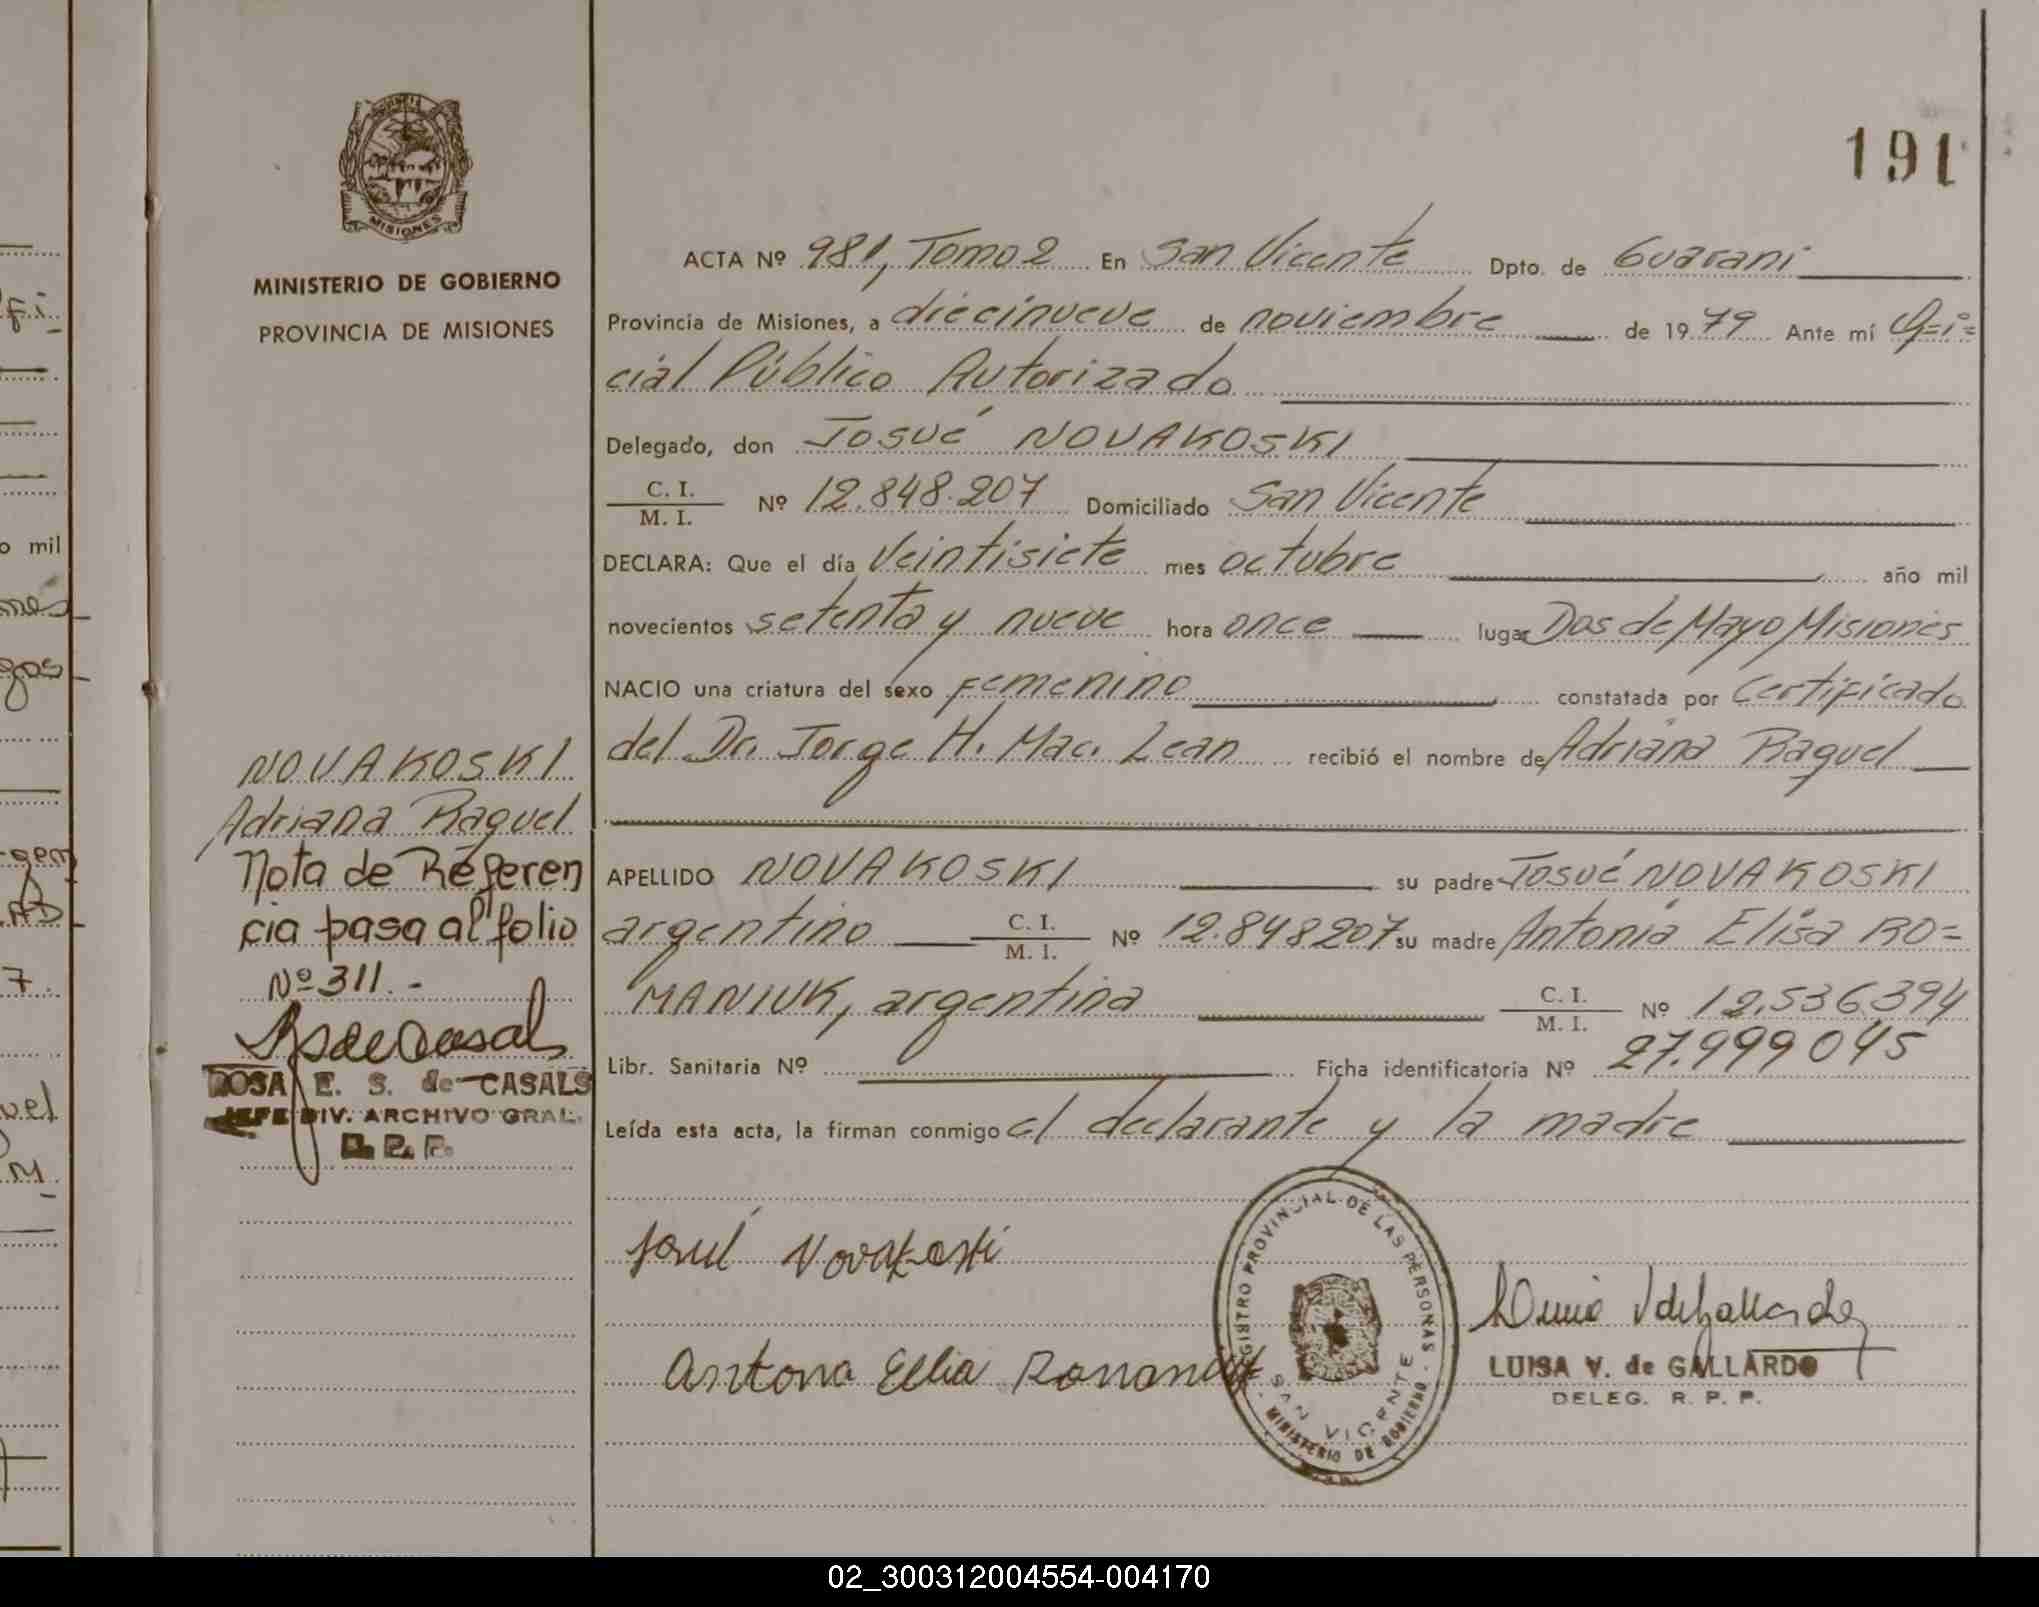 191
MINISTERIO DE GOBIERNO
PROVINCIA DE MISIONES
ACTA Nº 981, Tomo 2 En San Vicente Dpto. de Guarani
Provincia de Misiones, a diecinueve de noviembre de 1979 Ante mí Ofi=
cial Público Autorizado
Delegado, don Josué NOVAKOSKI
C. I.
M. I. Nº 12.848.207 Domiciliado San Vicente
DECLARA: Que el día Veintisiete mes octubre año mil
novecientos setenta y nueve hora once lugar Dos de Mayo Misiones
NACIO una criatura del sexo Femenino constatada por Certificado
del Dr. Jorge H. Mac. Lean recibió el nombre de Adriana Raquel
APELLIDO NOVAKOSKI su padre Josué NOVAKOSKI
argentino C. I.
M. I. Nº 12.848207 su madre Antonia Elisa RO=
MANIUK, argentina C. I.
M. I. Nº 12.536394
Libr. Sanitaria Nº Ficha identificatoria Nº 27.999045
Leída esta acta, la firman conmigo el declarante y la madre
NOVAKOSKI
Adriana Raquel
Nota de Referen
cia pasa al folio
Nº 311.-
ROSA E. S. de CASALS
JEFE DIV. ARCHIVO GRAL.
R. P. P.
Josué Novakoski
REGISTRO PROVINCIAL DE LAS PERSONAS
SAN VICENTE
MINISTERIO DE GOBIERNO
LUISA V. de GALLARDO
DELEG. R. P. P.
MISIONES
o mil
02_300312004554-004170